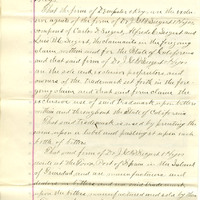 That the firm of Dempster & Key are the
agents of the firm of Dr J. G. B. Siegert & Hijos
composed of Carlos D. Siegert, Alfredo C. Siegert and
the claimants in the foregoing
claim written and for the State of California
and that said firm of Dr J. G. B. Siegert & Hijos
are the sole and exclusive proprietors and
owners of the Trademark set forth in the fore-
going claim and that said firm claim the
exclusive use of said Trademark upon bitters
and throughout the State of California
That said Trademark is used by printing the
same upon a label and pasting it upon each
bottle of bitters
That said firm of Dr J. G. B. Siegert & Hijos
reside at the Town Port of Spain in the Island
of Trinidad and are manufacturers and
dealers in bitters and use said Trademark
upon the bitters manufactured and sold by them